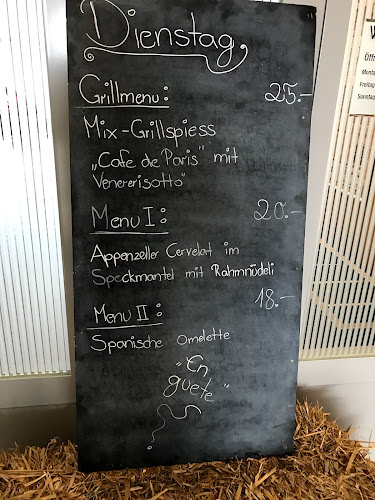 Dienstag
Grillmenu: 25.-
Mix-Grillspiess
„Cafe de Paris" mit
Venererisotto"
Menu I: 20.-
Appenzeller Cervelat im
Speckmantel mit Rahmnüdeli
Menu II: 18.-
Spanische Omelette
"En
guete"
W
Öff
Monta
Freitag
Sonntag